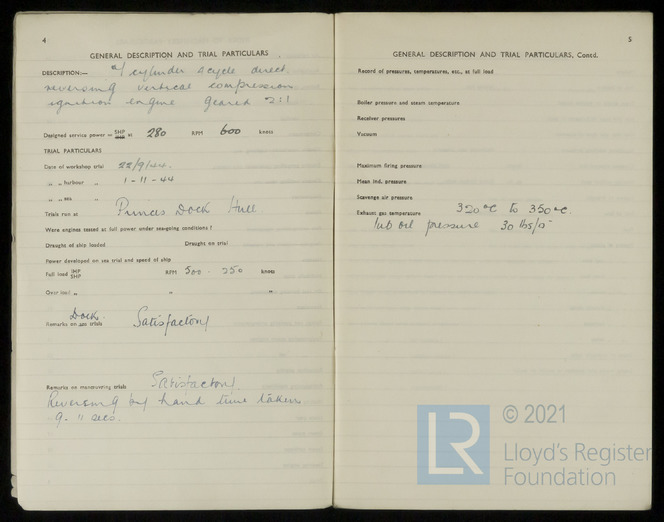 4
GENERAL DESCRIPTION AND TRIAL PARTICULARS
DESCRIPTION:— cylinder 4 cycle direct
reversing vertical compression
ignition engine geared 2:1
Designed service power = SHP IHP at 280 RPM 600 knots
TRIAL PARTICULARS
Date of workshop trial 22/9/44.
„ „ harbour „ 1-11-44
„ „ sea „
Trials run at Princes Dock Hull
Were engines tested at full power under sea-going conditions ?
Draught of ship loaded Draught on trial
Power developed on sea trial and speed of ship
Full load IHP SHP RPM 500 - 250 knots
Over load „ „ „
Dock.
Remarks on sea trials Satisfactory
Remarks on manœuvring trials Satisfactory
Reversing by hand time taken
9 - 11 secs.
5
GENERAL DESCRIPTION AND TRIAL PARTICULARS, Contd.
Record of pressures, temperatures, etc., at full load
Boiler pressure and steam temperature
Receiver pressures
Vacuum
Maximum firing pressure
Mean ind. pressure
Scavenge air pressure
Exhaust gas temperature 320°C to 350°C.
lub oil pressure 30 lbs/□"
LR
© 2021
Lloyd's Register
Foundation